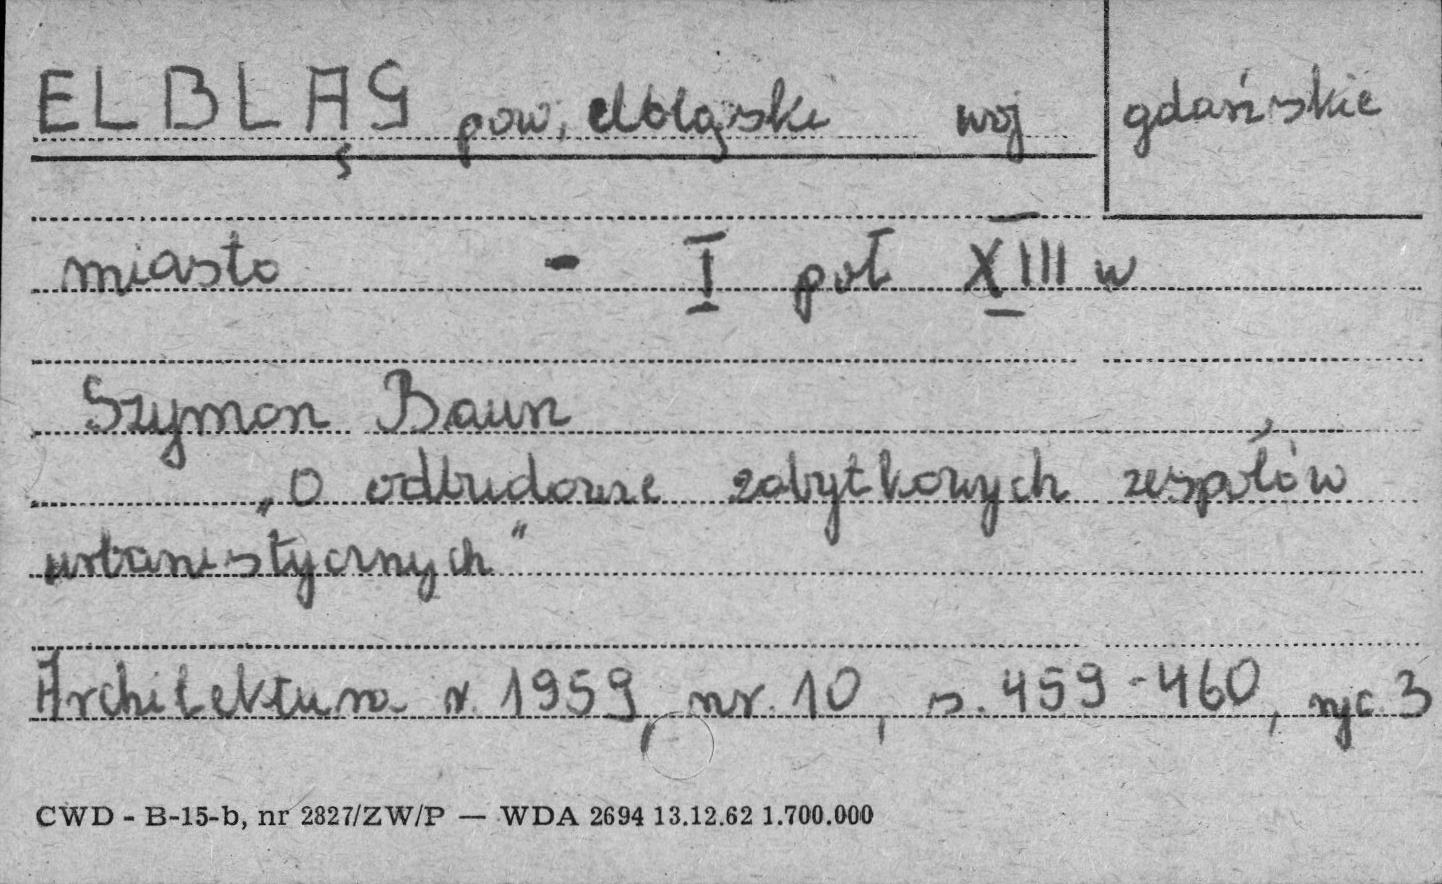 ELBLĄG pow, elbląski woj gdańskie
miasto - I poł XIII w
Szymon Baum
„O odbudowie zabytkowych zespołów
urbanistycznych"
Architektura r. 1959, nr. 10, s. 459-460, ryc. 3
CWD - B-15-b, nr 2827/ZW/P — WDA 2694 13.12.62 1.700.000